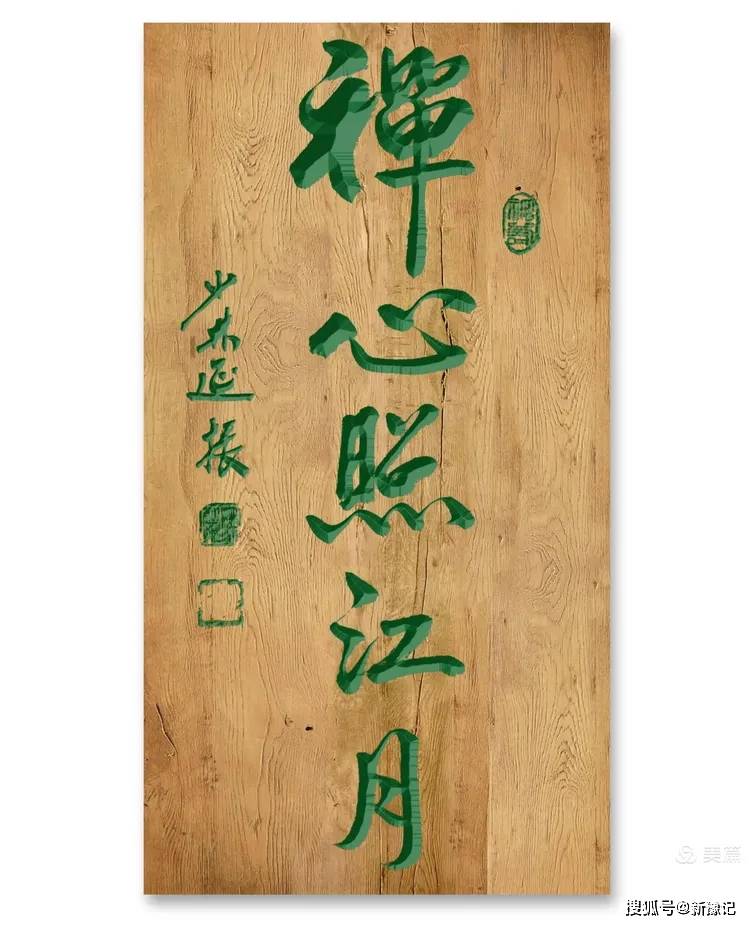 禪心照江月
少林延振
美篇
搜狐号@新豫记